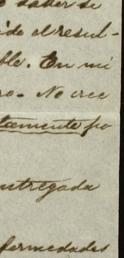 saber si
el resul-
ble. En mi
ro. No cree
tamente po
entregada
fermedades